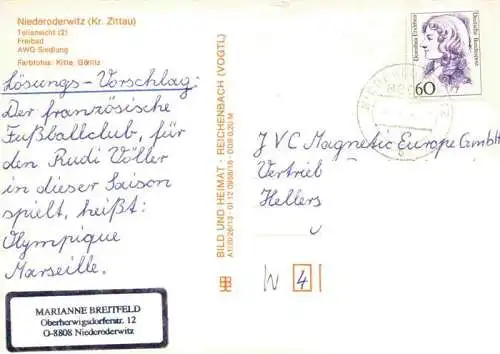 Niederoderwitz (Kr. Zittau)
Teilansicht (2)
Freibad
AWG Siedlung
Farbfotos: Kitte, Görlitz
Lösungs-Vorschlag:
Der französische
Fußballclub, für
den Rudi Völler
in dieser Saison
spielt, heißt:
Olympique
Marseille.
MARIANNE BREITFELD
Oberherwigsdorferstr. 12
O-8808 Niederoderwitz
BILD UND HEIMAT · REICHENBACH (VOGTL)
Dorothea Erxleben
Deutsche Bundespost
60
JVC Magnetic Europe GmbH
Vertrieb
Hellers
W 4